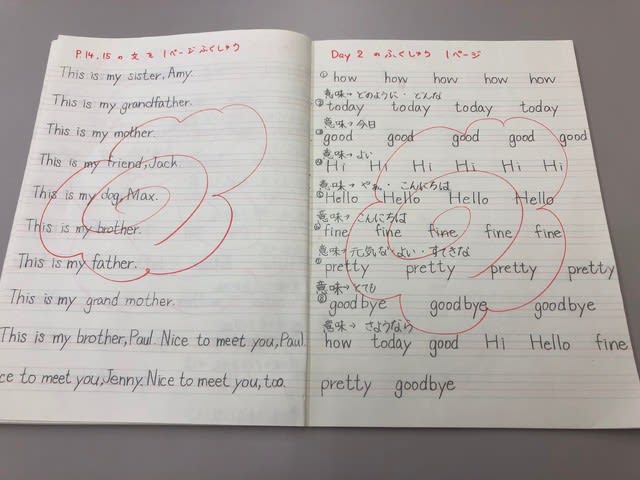 P.14.15 の 文 を 1ページふくしゅう
This is my sister, Amy.
This is my grandfather.
This is my mother.
This is my friend, Jack.
This is my dog, Max.
This is my brother.
This is my father.
This is my grand mother.
This is my brother, Paul. Nice to meet you, Paul.
ce to meet you, Jenny. Nice to meet you, too.
Day 2 の ふくしゅう 1ページ
① how how how how how
意味→どのように・どんな
② today today today today
意味→今日
③ good good good good good
意味→よい
④ Hi Hi Hi Hi Hi Hi
意味→やぁ・こんにちは
⑤ Hello Hello Hello Hello
意味→こんにちは
⑥ fine fine fine fine fine
意味→元気な・よい・すてきな
⑦ pretty pretty pretty pretty
意味→とても
⑧ goodbye goodbye goodbye
意味→さようなら
how today good Hi Hello fine
pretty goodbye